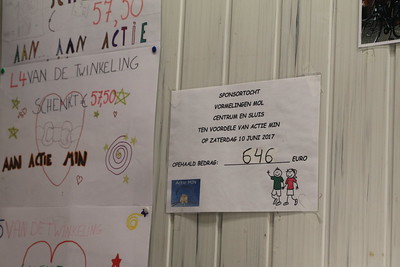 57,50
AAN AAN ACTIE
L4 VAN DE TWINKELING
SCHENKT € 57,50
AAN ACTIE MIN
VAN DE TWINKELING
SPONSORTOCHT
VORMELINGEN MOL
CENTRUM EN SLUIS
TEN VOORDELE VAN ACTIE MIN
OP ZATERDAG 10 JUNI 2017
OPGEHAALD BEDRAG: 646 EURO